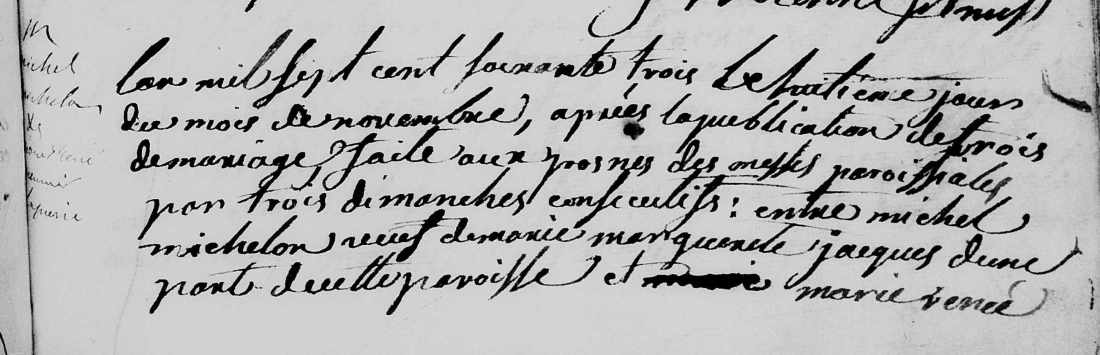 m
michel
michelon
&
lan mil sept cent soixante trois Le huitième jour
du mois de novembre, après la publication de trois
de mariage, faite aux prosnes des messes paroissiales
par trois dimanches consecutifs : entre michel
michelon veuf de marie marguerite jacques dune
part de cette paroisse et marie renée